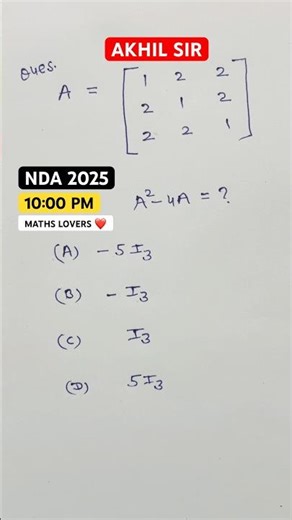 AKHIL SIR
Ques.
A = [ 1 2 2
2 1 2
2 2 1 ]
NDA 2025
10:00 PM
MATHS LOVERS ❤️
A² - 4A = ?
(A) - 5I₃
(B) - I₃
(C) I₃
(D) 5I₃